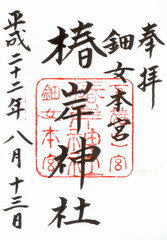 奉拝
鈿女本宮
椿岸神社
平成二十二年八月十三日
鈿女本宮